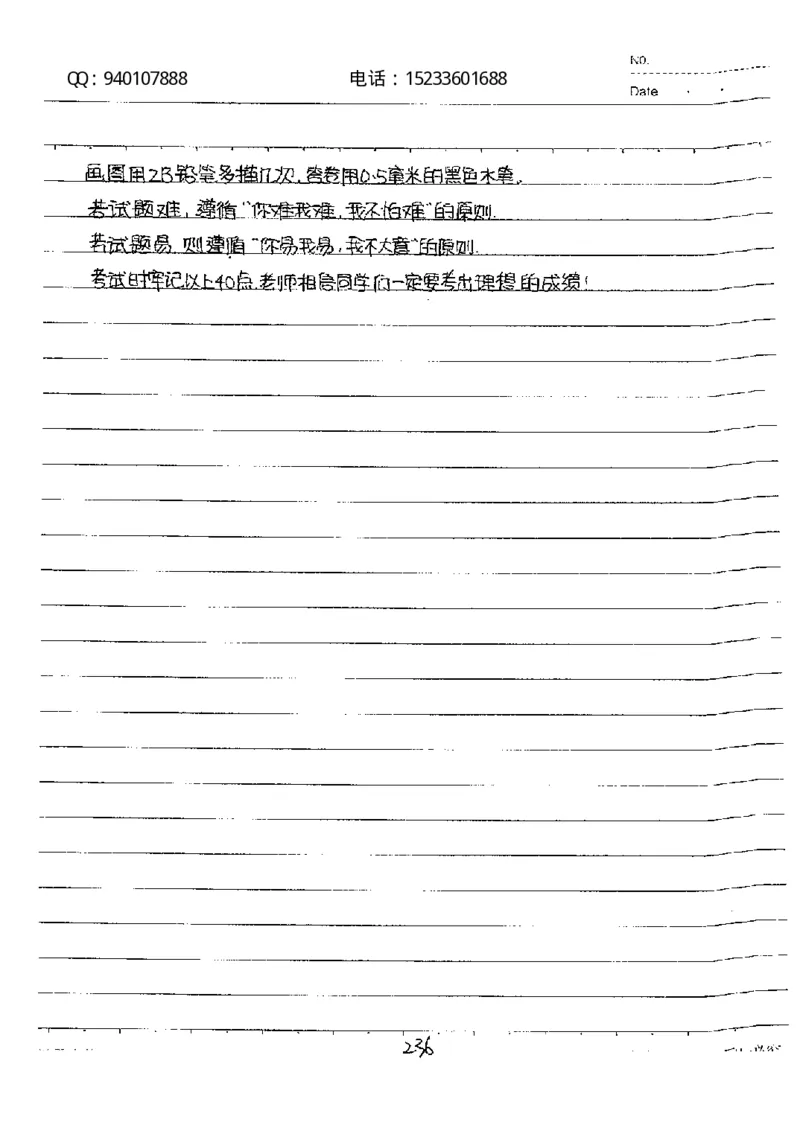 No.
QQ：940107888 电话：15233601688
Date
画图用2B铅笔多描几次，答卷用0.5毫米的黑色水笔.
若试题难，遵循“你难我难，我不怕难”的原则.
若试题易，则遵循“你易我易，我不大意”的原则.
考试时牢记以上40点，老师相信同学们一定要考出理想的成绩！
236